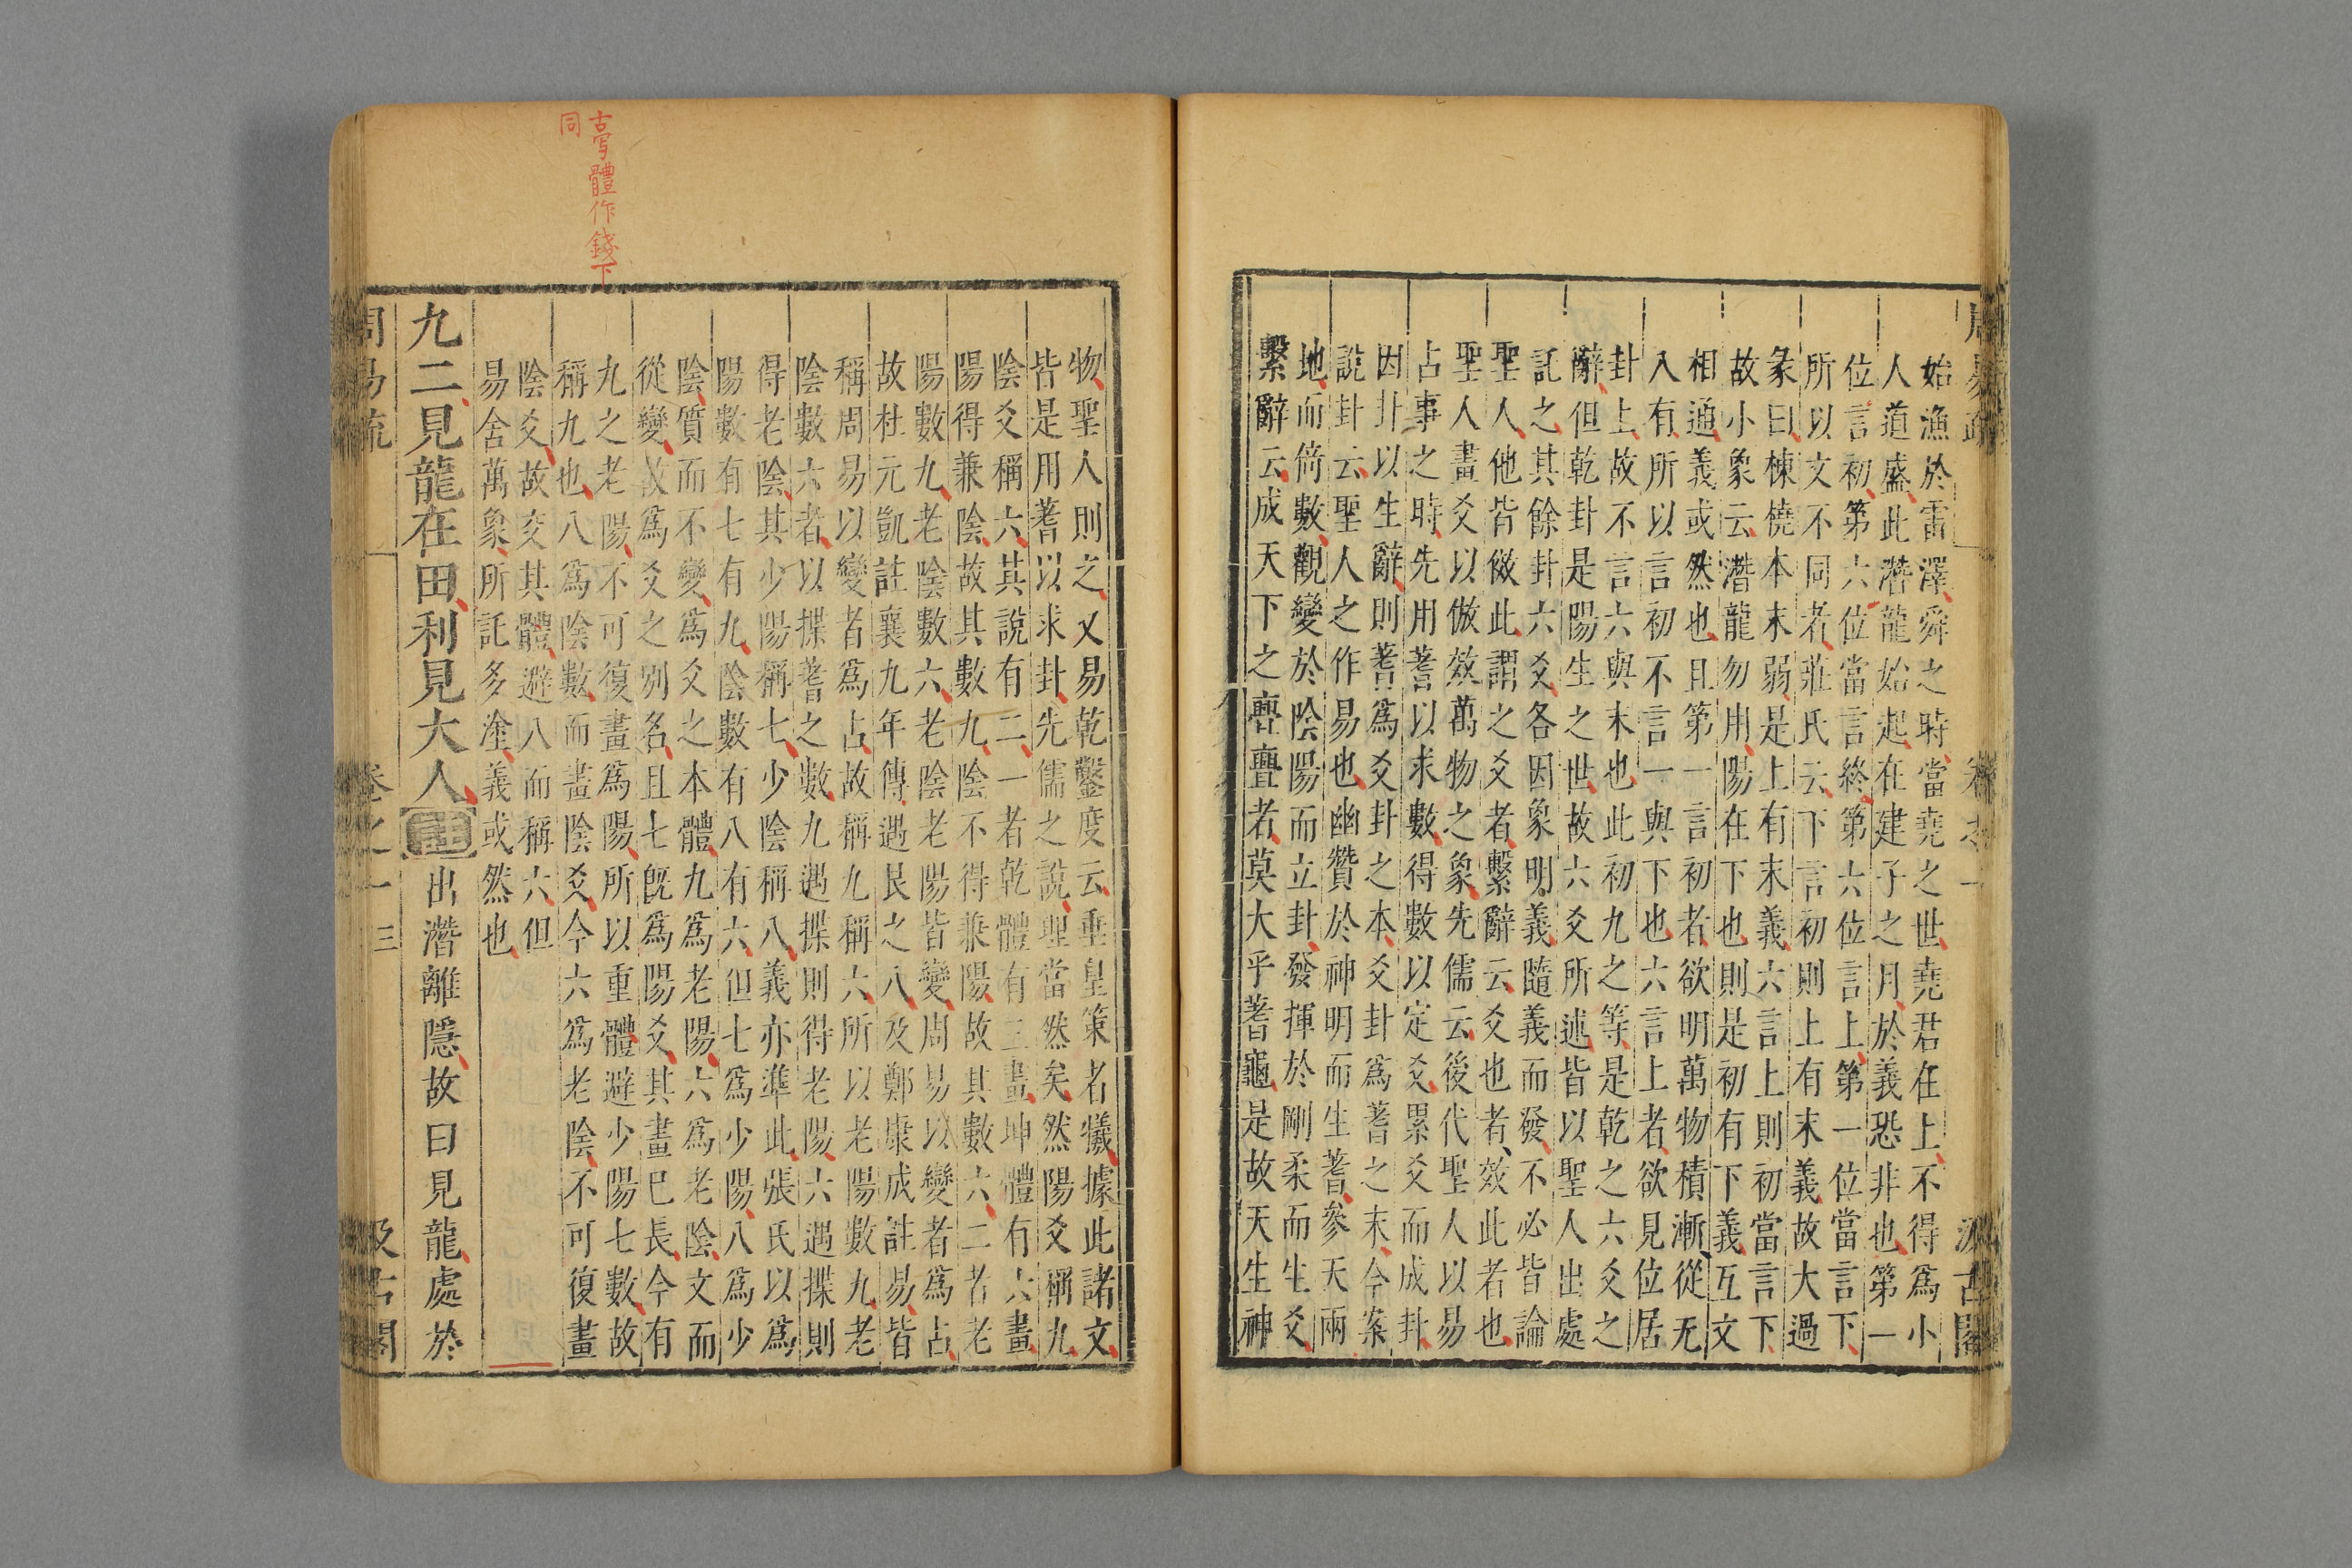 始漁於雷澤舜之時當堯之世堯君在上不得爲小
人道盛此潛龍始起在建子之月於義恐非也第一
位言初第六位當言終第六位言上第一位當言下
所以文不同者莊氏云下言初則上有末義故大過
彖曰棟橈本末弱是上有末義六言上則初當言下
故小象云潛龍勿用陽在下也則是初有下義互文
相通義或然也且第一言初者欲明萬物積漸從无
入有所以言初不言一與下也六言上者欲見位居
卦上故不言六與末也此初九之等是乾之六爻之
辭但乾卦是陽生之世故六爻所述皆以聖人出處
託之其餘卦六爻各因象明義隨義而發不必皆論
聖人他皆倣此謂之爻者繫辭云爻也者效此者也
聖人畫爻以倣效萬物之象先儒云後代聖人以易
占事之時先用蓍以求數得數以定爻累爻而成卦
因卦以生辭則蓍爲爻卦之本爻卦爲蓍之末今案
說卦云聖人之作易也幽贊於神明而生蓍參天兩
地而倚數觀變於陰陽而立卦發揮於剛柔而生爻
繫辭云成天下之亹亹者莫大乎蓍龜是故天生神
物聖人則之又易乾鑿度云垂皇策者犧據此諸文
皆是用蓍以求卦先儒之說理當然矣然陽爻稱九
陰爻稱六其說有二一者乾體有三畫坤體有六畫
陽得兼陰故其數九陰不得兼陽故其數六二者老
陽數九老陰數六老陰老陽皆變周易以變者爲占
故杜元凱註襄九年傳遇艮之八及鄭康成註易皆
稱周易以變者爲占故稱九稱六所以老陽數九老
陰數六者以揲蓍之數九遇揲則得老陽六遇揲則
得老陰其少陽稱七少陰稱八義亦準此張氏以爲
陽數有七有九陰數有八有六但七爲少陽八爲少
陰質而不變爲爻之本體九爲老陽六爲老陰文而
從變故爲爻之別名且七旣爲陽爻其畫巳長今有
九之老陽不可復畫爲陽所以重體避少陽七數故
稱九也八爲陰數而畫陰爻今六爲老陰不可復畫
陰爻故交其體避八而稱六但
易舍萬象所託多塗義或然也
九二見龍在田利見大人
出潛離隱故曰見龍處於
周易疏
卷之一
三
汲古閣
體作錢下
同